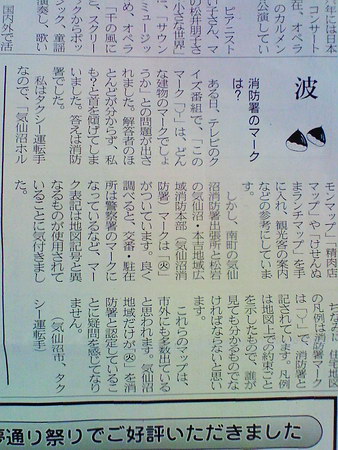 年には日本
コンサート
在、オペラ
のカルメン
公演してい
ピアニスト
の松井朋子さ
小さな世界」
「サウン
ミュージッ
「千の風に
ど、スクリー
からポッ
ック、童謡
演奏し、歌い
国内外で活
波
消防署のマーク
は?
ある日、テレビのク
イズ番組で、「この
マーク〈Y〉は、どん
な建物のマークでしょ
うか」との問題が出さ
れました。解答者のほ
とんどが分からず、私
も?と首を傾げてしま
いました。答えは消防
署でした。
私はタクシー運転手
なので、「気仙沼ホル
モンマップ」「精肉店
マップ」や「けせんぬ
まランチマップ」を手
に入れ、観光客の案内
などの参考にしていま
す。
しかし、南町の気仙
沼消防署出張所と松岩
の気仙沼・本吉地域広
域消防本部(気仙沼消
防署)マークは「㊋」
がついています。良く
調べると、交番・駐在
所は警察署のマークに
なっているなど、マー
ク表記は地図記号と異
なるものが使用されて
いることに気付きまし
た。
ちなみに、住宅地図
の凡例は消防署マーク
は「Y」で、消防署と
記されています。凡例
は地図上での約束ごと
を示したもので、誰が
見ても分かるものでな
ければならないと思い
ます。
これらのマップは、
市外にも多数出ている
と思われます。気仙沼
地域だけが「㊋」を消
防署と認定しているこ
とに疑問を感じてなり
ません。
(気仙沼市、タク
シー運転手)
夢通り祭りでご好評いただきました